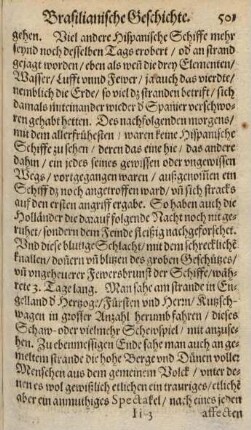 Brasilianische Geschichte. 501
gehen. Viel andere Hispanische Schiffe mehr
seynd noch desselben Tags erobert / od an strand
gejagt worden / eben als weñ die drey Elementen /
Wasser / Lufft vnnd Fewer / ja auch das vierdte /
nemblich die Erde / so viel dz stranden betrifft / sich
damals miteinander wieder d Spanier verschwo-
ren gehabt hetten. Des nachfolgenden morgens /
mit dem allerfrühesten / waren keine Hispanische
Schiffe zu sehen / deren das eine hie / das andere
dahin / ein jedes seines gewissen oder vngewissen
Wegs / vortgegangen waren / außgenom̃en ein
Schiff dz noch angetroffen ward / vñ sich stracks
auf den ersten angriff ergabe. So haben auch die
Holländer die darauf folgende Nacht noch nit ge-
ruhet / sondern dem Feinde fleißig nachgeforschet.
Vnd diese blutige Schlacht / mit dem schrecklichē
knallen / doñern vñ blitzen des groben Geschützes /
vñ vngeheurer Fewersbrunst der Schiffe / wäh-
rete 3. Tage lang. Man sahe am strande in En-
gelland d Hertzoge / Fürsten vnd Herrn / Kutzsch-
wagen in grosser Anzahl herumb fahren / dieses
Schaw- oder vielmehr Schewspiel / mit anzuse-
hen. Zu ebenmessigen Ende sahe man auch an ge-
meltem strande die hohe Berge vnd Dünen voller
Menschen aus dem gemeinem Volck / vnter de-
nen es wol gewißlich etlichen ein trauriges / etlichē
aber ein anmuthiges Spectakel / nach eines jeden
Ii-3 affecten